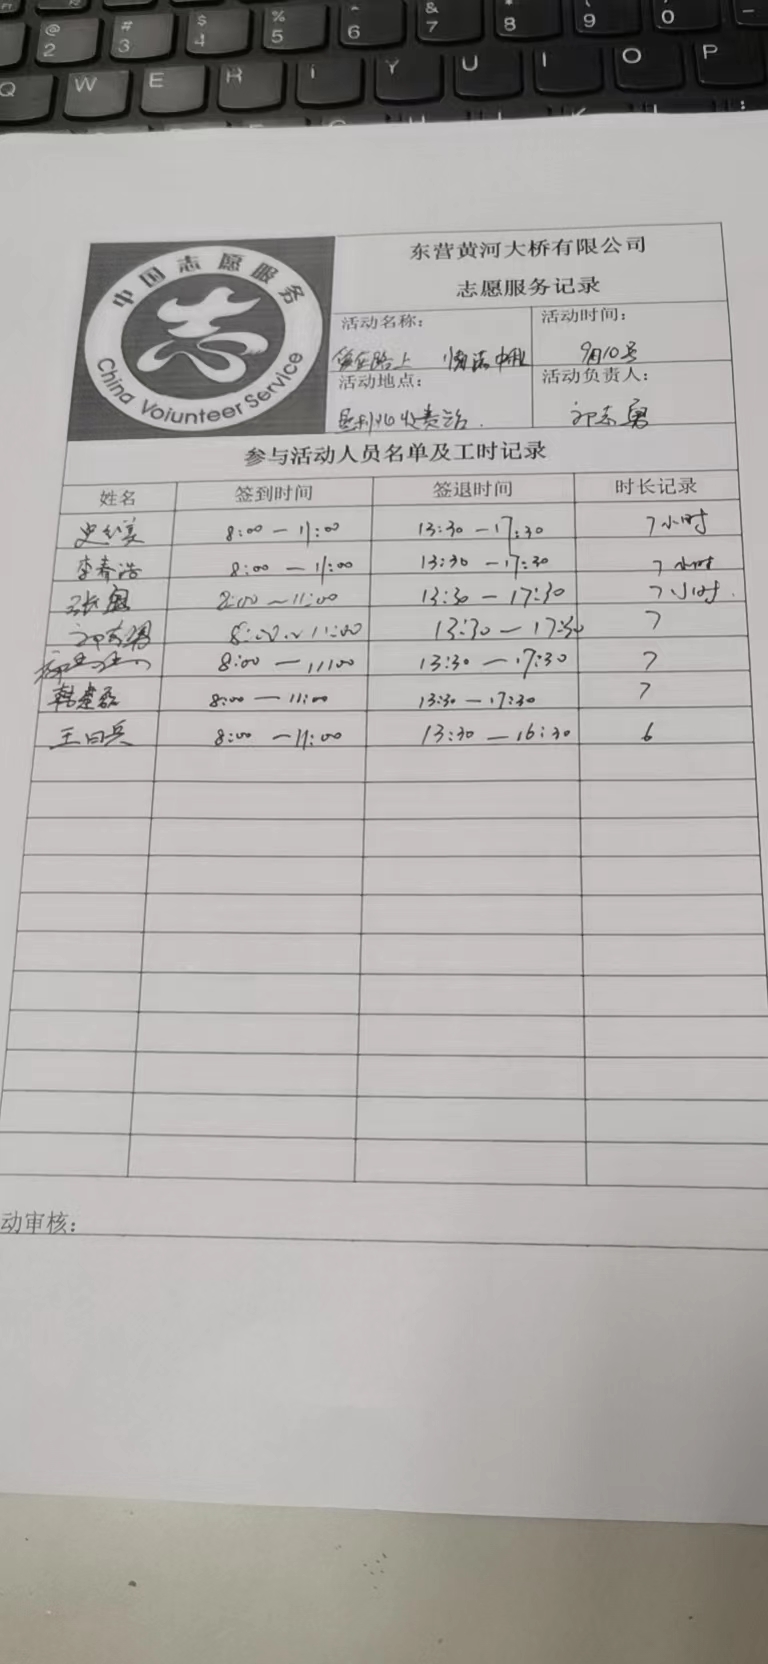 @ # $ % ^ & * ( ) _
2 3 4 5 6 7 8 9 0
Q W E R T Y U I O P
中国志愿服务
志
China Volunteer Service
东营黄河大桥有限公司
志愿服务记录
活动名称： 活动时间：
爱在路上 情满中秋 9月10号
活动地点： 活动负责人：
垦利北收费站.
参与活动人员名单及工时记录
姓名 签到时间 签退时间 时长记录
8:00 — 11:00 13:30 — 17:30 7小时
李春浩 8:00 — 11:00 13:30 — 17:30 7小时
张勇 8:00 ~ 11:00 13:30 — 17:30 7小时.
8:00 ~ 11:00 13:30 — 17:30 7
8:00 — 11:00 13:30 — 17:30 7
8:00 — 11:00 13:30 — 17:30 7
8:00 — 11:00 13:30 — 16:30 6
动审核：